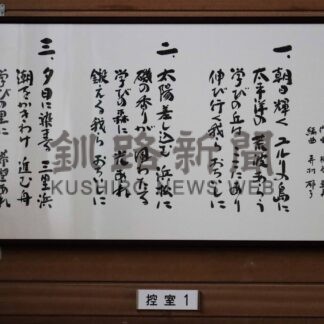 一、朝日輝くユルリ島に
太平洋の荒波あらう
学びの丘はここにあり
伸び行く我ら おちいし
二、太陽差し込む浜松に
磯の香りが
学びの森に 光あれ
鍛える我ら おちいし
三、夕日に染まる 三里浜
潮をかきわけ 進む舟
学びの里に 希望あれ
釧路新聞
KUSHIRO NEWS WEB
控室 1